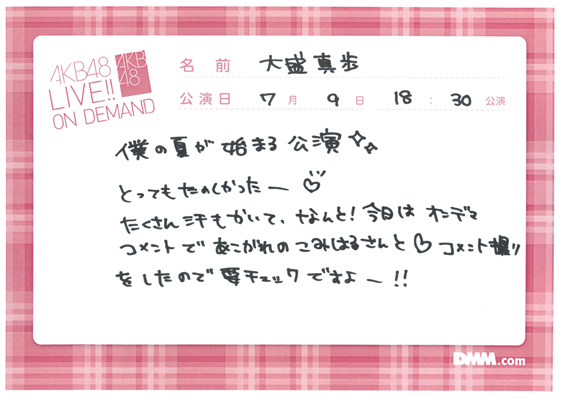 AKB48
LIVE!!
ON DEMAND
AKB
48
名前 大盛真歩
公演日 7月9日 18:30公演
僕の夏が始まる公演
とってもたのしかったー♡
たくさん汗もかいて、なんと!今日はオンデマ
コメントであこがれのこみはるさんと♡コメント撮り
をしたので要チェックですよー!!
DMM.com